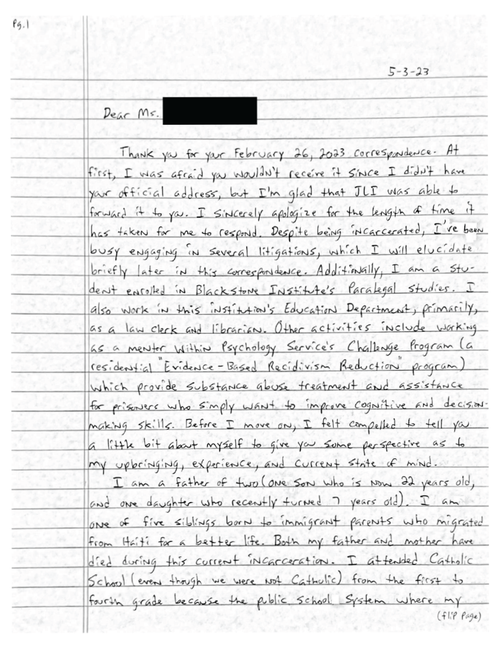 Pg. 1
5-3-23
Dear Ms.
Thank you for your February 26, 2023 correspondence. At
first, I was afraid you wouldn't receive it since I didn't have
your official address, but I'm glad that JLI was able to
forward it to you. I sincerely apologize for the length of time it
has taken for me to respond. Despite being incarcerated, I've been
busy engaging in several litigations, which I will elucidate
briefly later in this correspondence. Additionally, I am a stu-
dent enrolled in Blackstone Institute's Paralegal Studies. I
also work in this institution's Education Department, primarily,
as a law clerk and librarian. Other activities include working
as a mentor within Psychology Service's Challenge Program (a
residential "Evidence-Based Recidivism Reduction" program)
which provide substance abuse treatment and assistance
for prisoners who simply want to improve cognitive and decision-
making skills. Before I move on, I felt compelled to tell you
a little bit about myself to give you some perspective as to
my upbringing, experience, and current state of mind.
I am a father of two (one son who is now 22 years old,
and one daughter who recently turned 7 years old). I am
one of five siblings born to immigrant parents who migrated
from Haiti for a better life. Both my father and mother have
died during this current incarceration. I attended Catholic
School (even though we were not Catholic) from the first to
fourth grade because the public school system where my
(flip page)